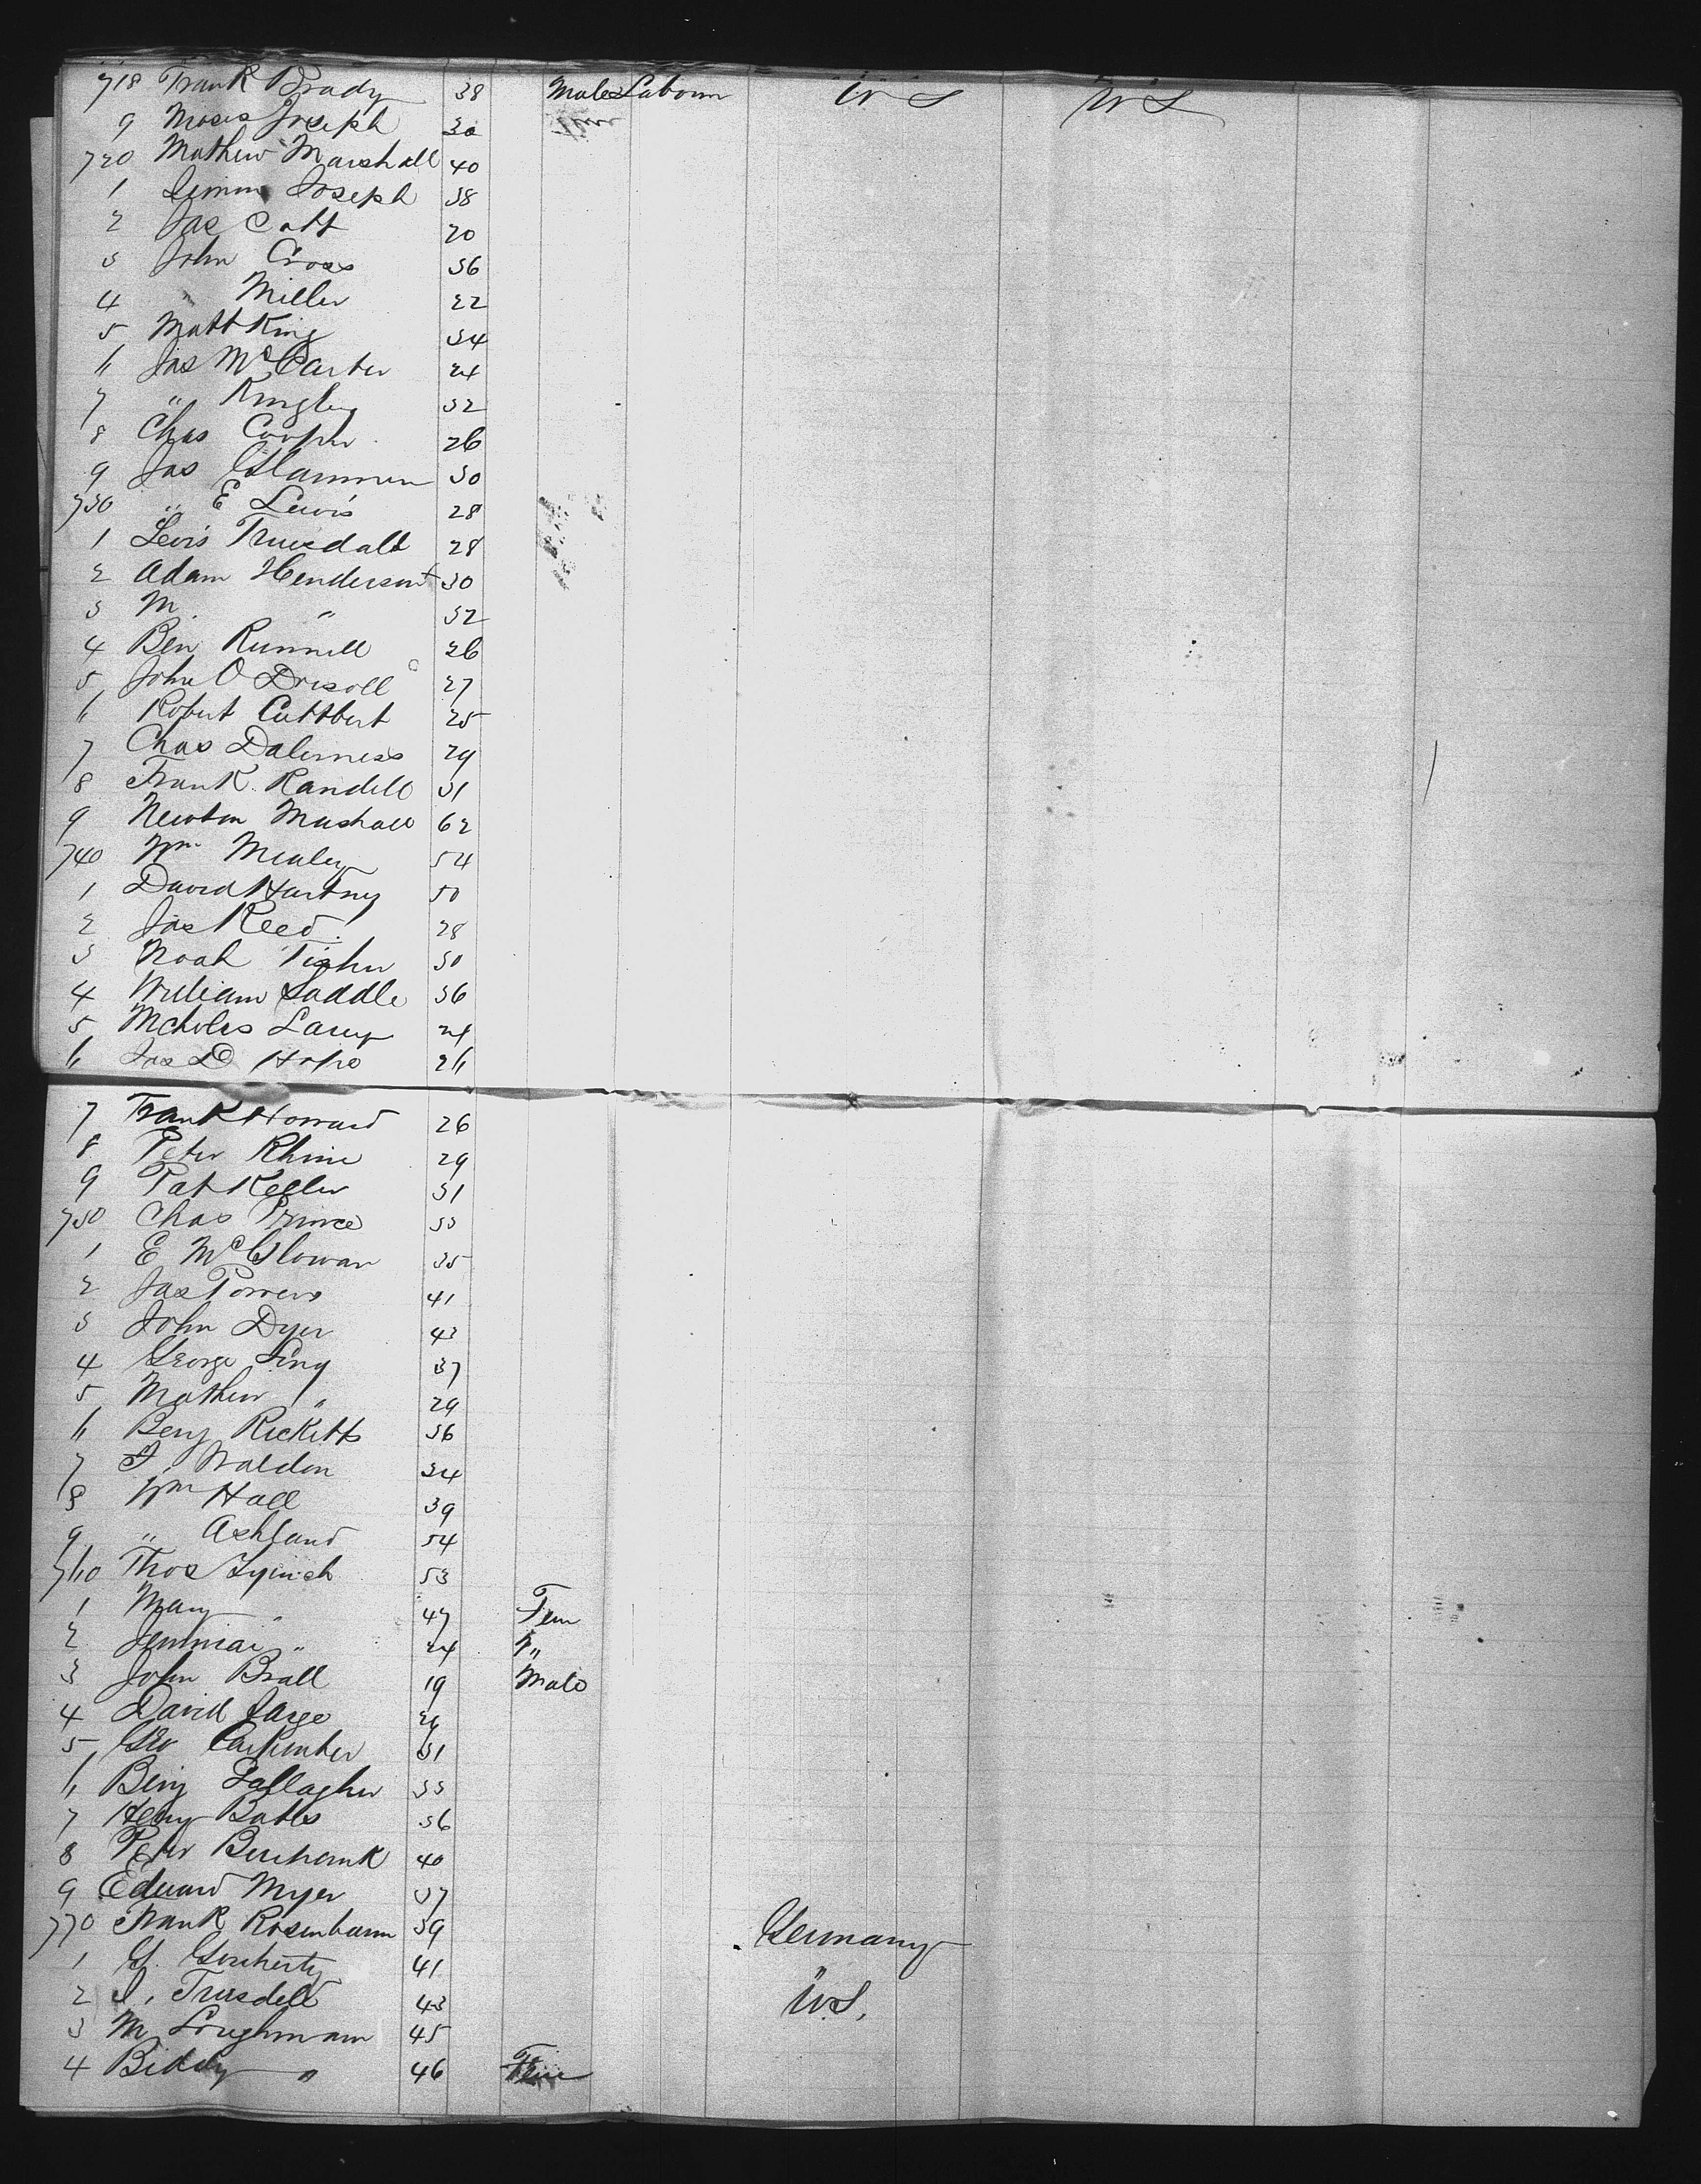 718 Frank Brady 38 Males Labourer U S U S
9 Moses Joseph 30
720 Mathew Marshall 40
1 Joseph 38
2 Jas Catt 20
3 John Cross 36
4 " Miller 22
5 Matt King 34
6 Jas McCarter 24
7 " Kingley 32
8 Chas Cooper 26
9 Jas 30
730 " E Lewis 28
1 Levis Truesdall 28
2 Adam Henderson 30
3 M. " 32
4 Ben Runnell 26
5 John O Drisoll 27
6 Robert Cuttbert 25
7 Chas 29
8 Frank Randell 31
9 Newton Mashall 62
740 Wm Mealey 54
1 David Hartny 50
2 Jas Reed 28
3 Noah 30
4 William Saddle 36
5 Nicholes Lacey 24
6 Jas D Hope 26
7 Frank Howard 26
8 Peter Rhine 29
9 Pat Keller 31
750 Chas Prince 33
1 E McGlowan 35
2 Jas Powers 41
3 John Dyer 43
4 George Ling 37
5 Mathew " 29
6 Benj Ricketts 36
7 J Waldon 34
8 Wm Hall 39
9 " Ashland 54
760 Thos Lynch 53
1 Mary " 47 Fem
2 Jemmiai " 24 "
3 John Brall 19 Male
4 David Large
5 Geo Carpenter 31
6 Benj Gallagher 33
7 Heny Batts 36
8 Peter Burbank 40
9 Edward Myer 37
770 Frank Rosenbaum 39 Germany
1 G. Gouherty 41 "
2 J. Trusdell 43 U.S.
3 M Loughmann 45
4 Biddy " 46 Fem